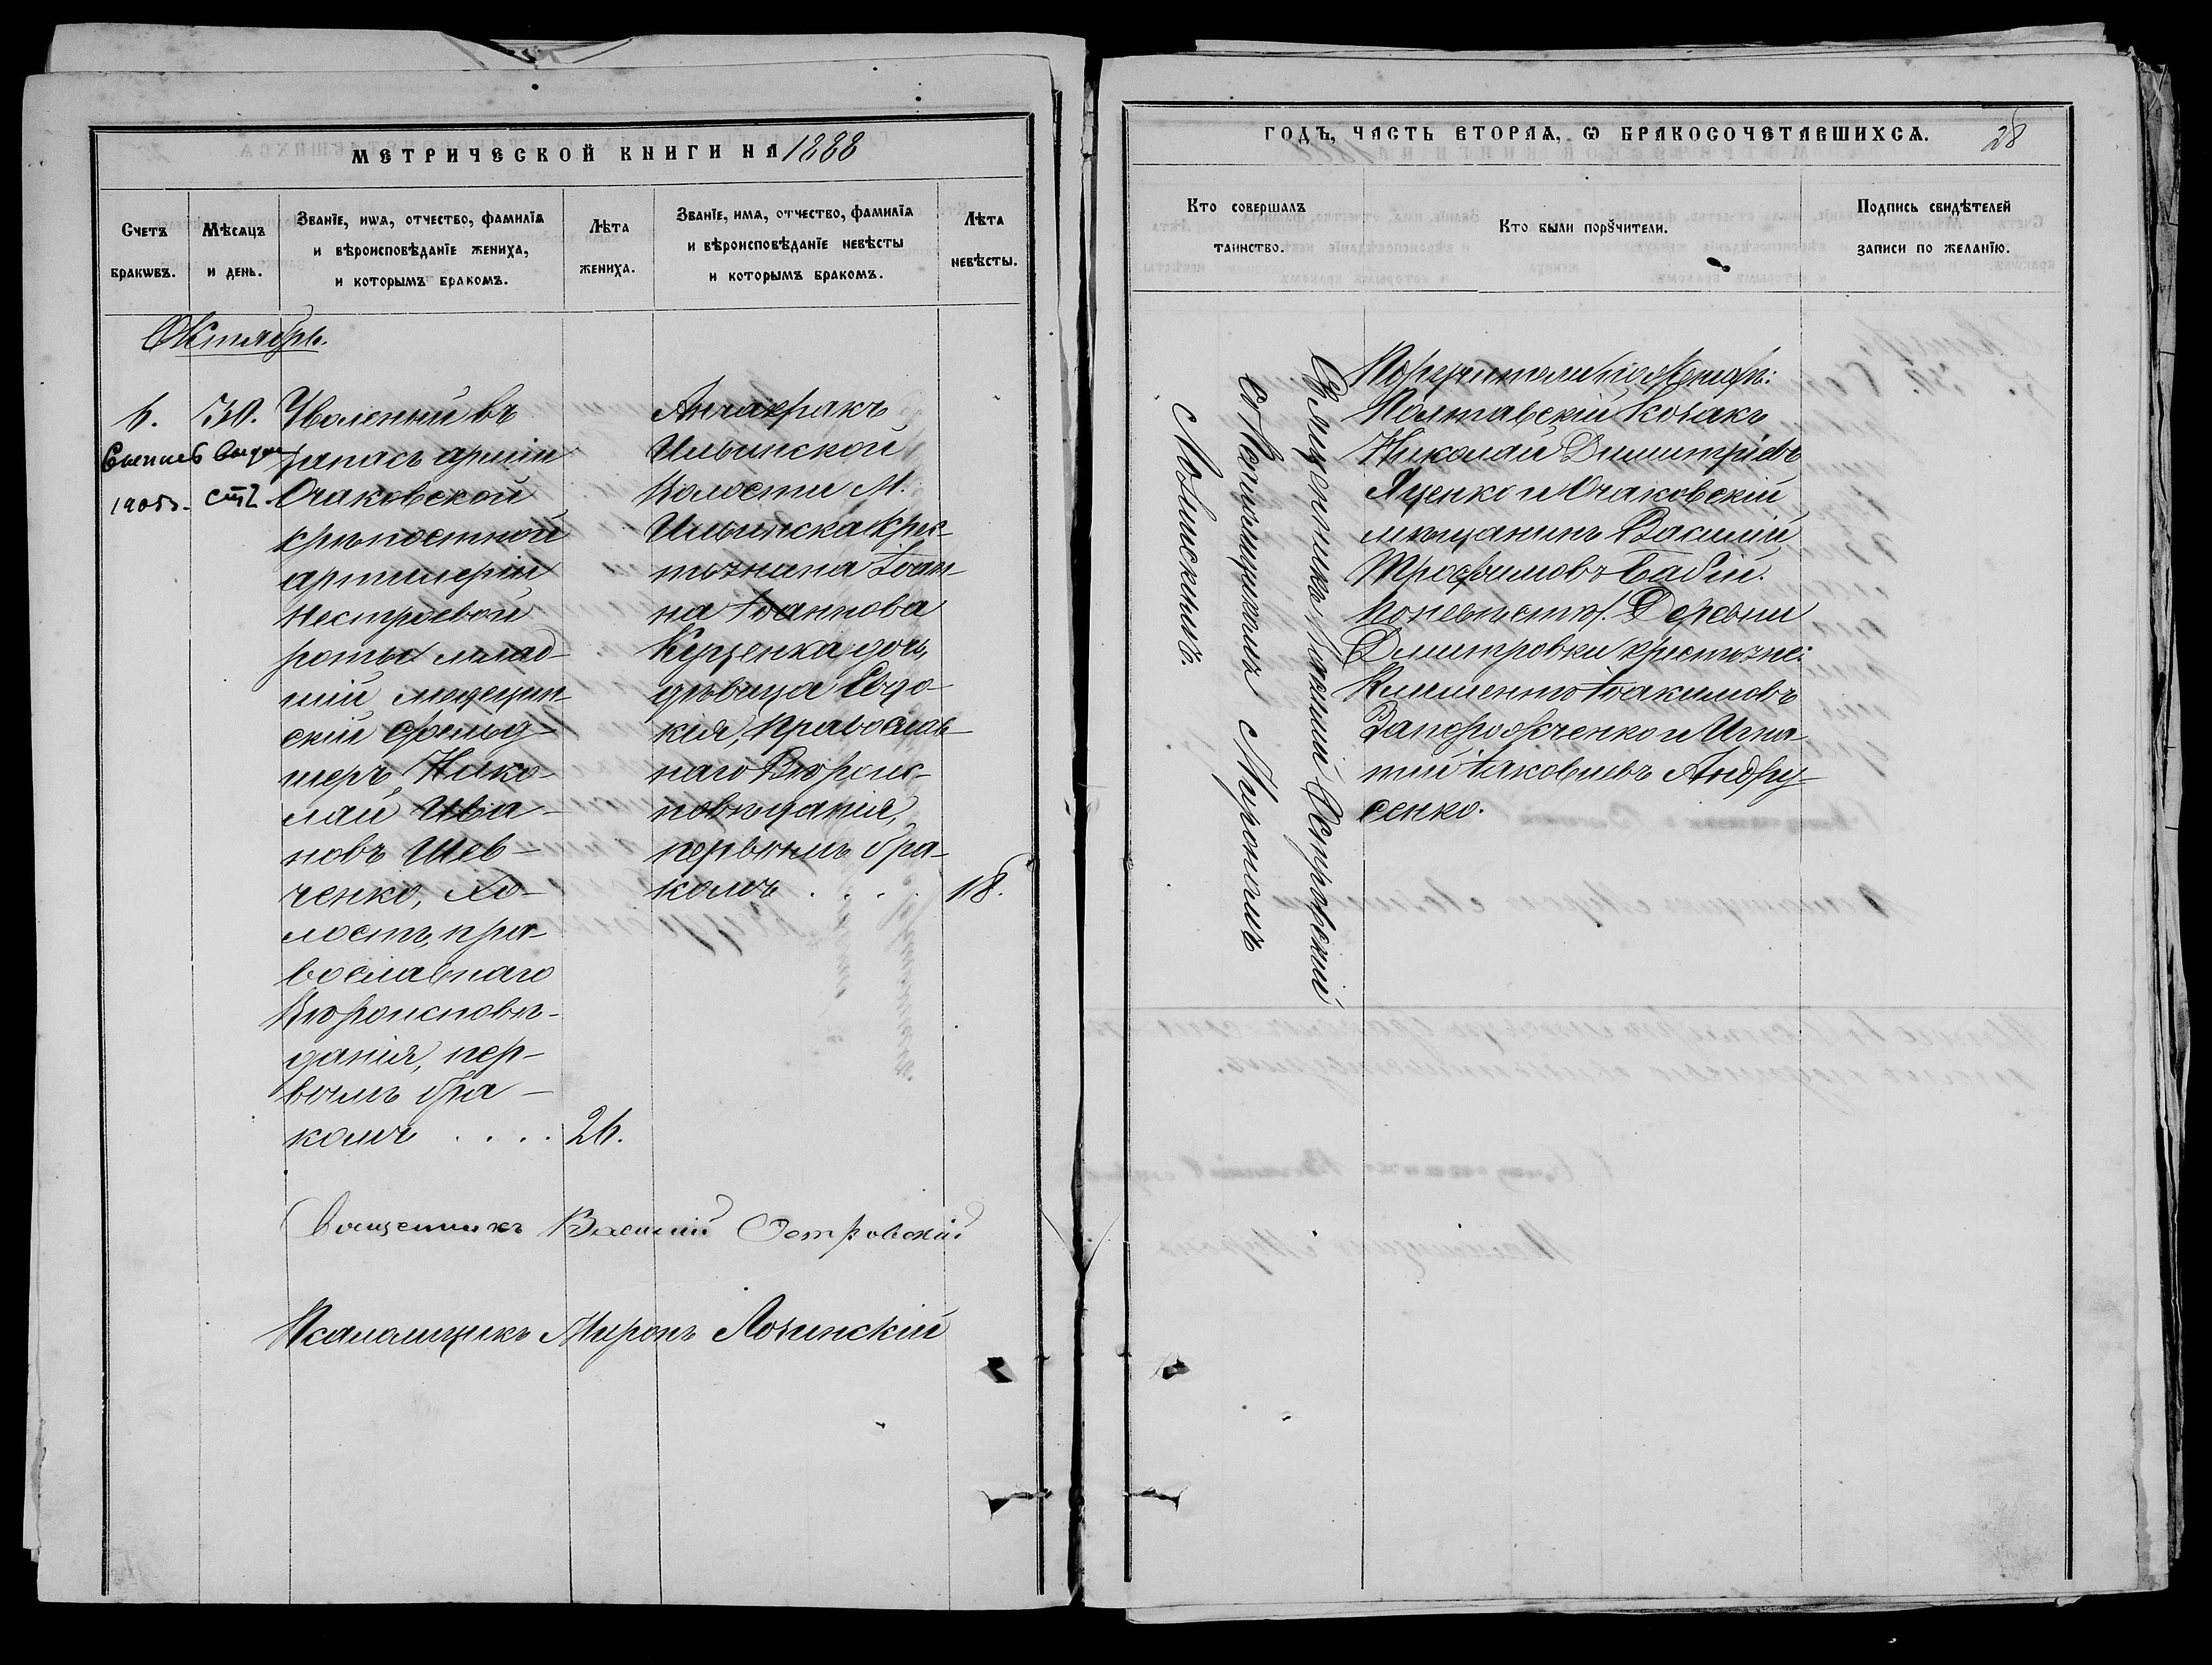 МЕТРИЧЕСКОЙ КНИГИ НА 1888
Счетъ
браковъ.
Мѣсяцъ
и день.
Званїе, имя, отчество, фамилїя
и вѣроисповѣданїе жениха,
и которымъ бракомъ.
Лѣта
жениха.
Званїе, имя, отчество, фамилїя
и вѣроисповѣданїе невѣсты
и которымъ бракомъ.
Лѣта
невѣсты.
Октябрь.
6.
30.
1905
Уволеный въ
запасъ арміи
Очаковской
крѣпостной
артилеріи
нестроевой
роты млад-
шій медецин-
скій фельд-
шеръ Нико-
лай Ива-
новъ Шев-
ченко, хо-
лостъ, пра-
вославнаго
Вѣроисповѣ-
данія, пер-
вымъ бра-
комъ . . . .
26.
Ильинской
Волости М.
Ильинска крес-
тьянина Іоан-
на Іоаннова
Куценка дочь,
дѣвица Евдо-
кія, Православ-
наго Вѣроис-
повѣданія,
первымъ бра-
комъ . . . .
18.
Священникъ Василий Островскій
Псаломщикъ Миронъ Лозинскій
ГОДЪ, ЧАСТЬ ВТОРАЯ, Ѡ БРАКОСОЧЕТАВШИХСЯ.
28
Кто совершалъ
таинство.
Кто были порꙋчители.
Подпись свидѣтелей
записи по желанїю.
Священникъ Василий Островский
съ Псаломщикомъ Мирономъ
Лозинскимъ.
Поручители по женихѣ:
Полтавскій козакъ
Николай Димитріевъ
Яценко и Очаковскій
мѣщанинъ Василій
Трофимовъ Бабій.
По невѣстѣ: Деревни
Дмитровки крестьяне:
Климентъ Іоакимовъ
Запорожченко и Игна-
тій Іаковлевъ Андру-
сенко.